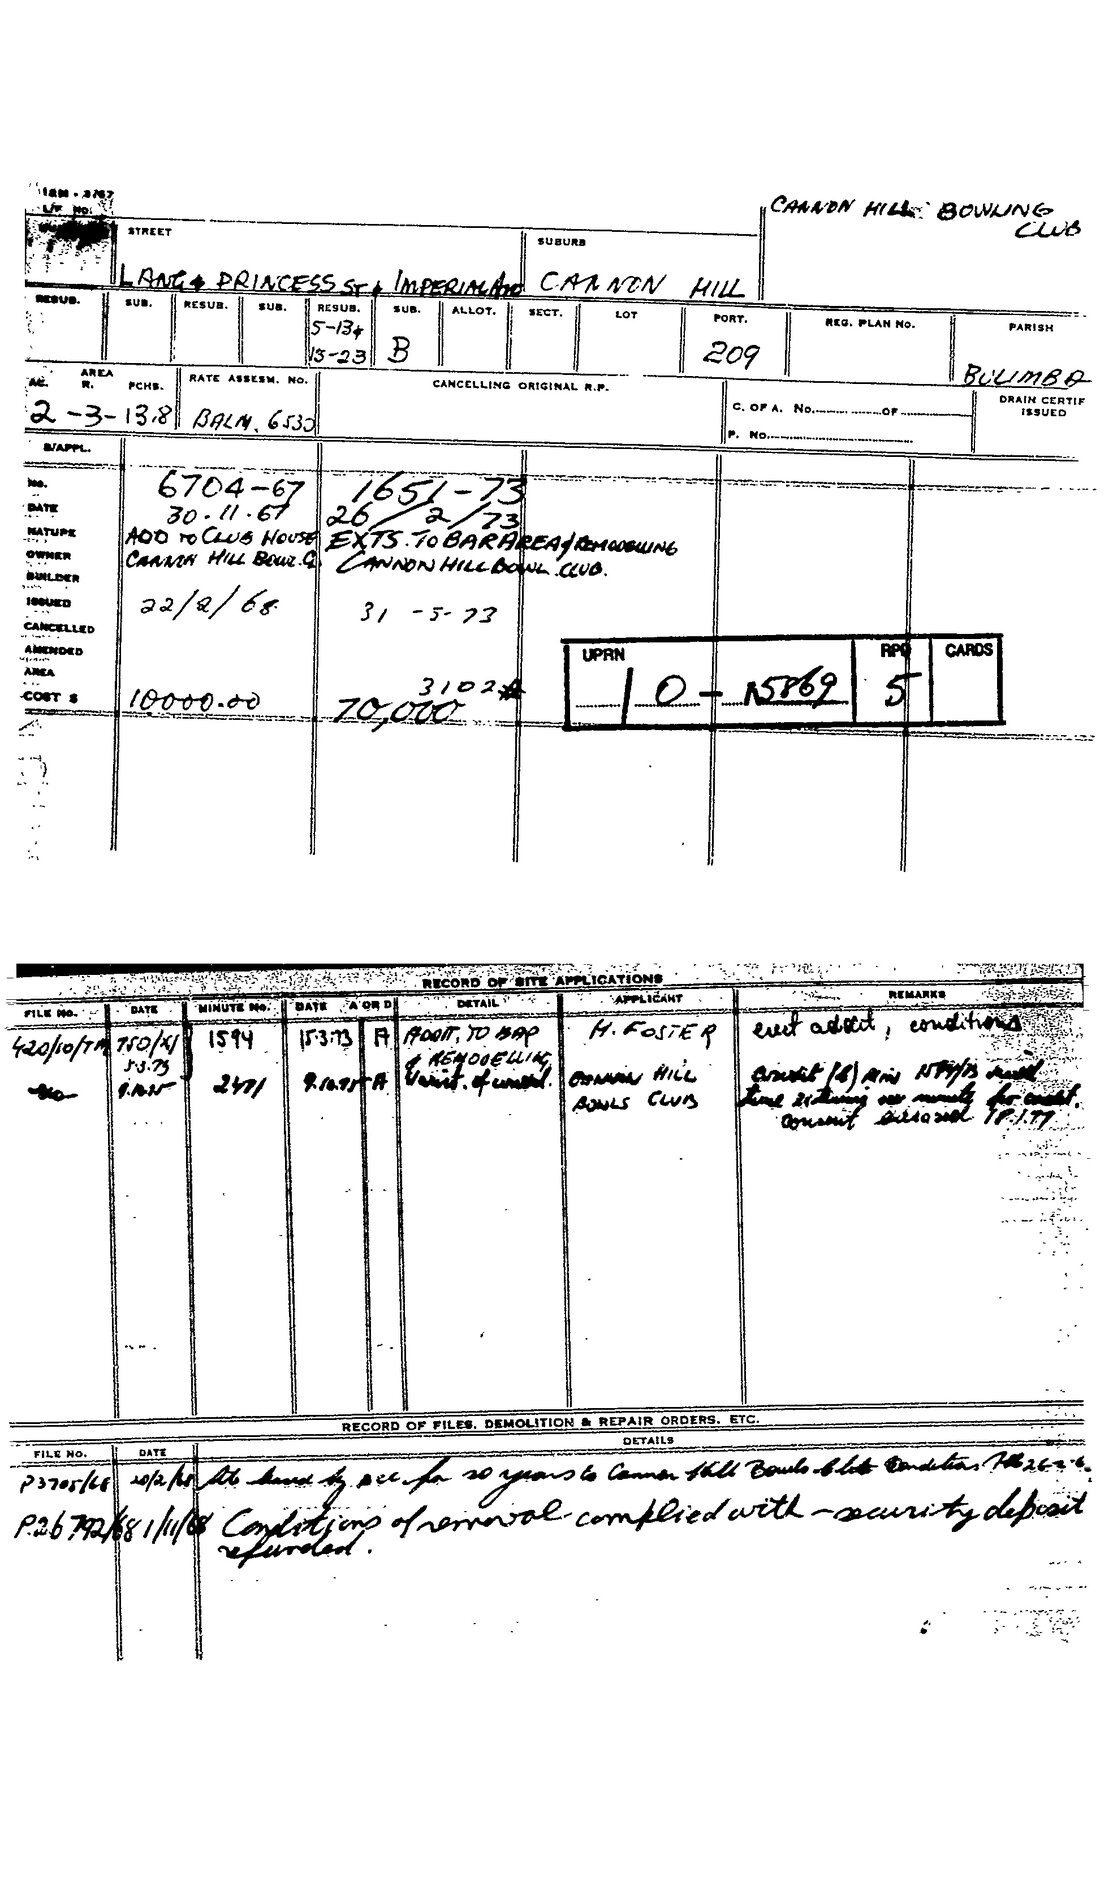 CANNON HILL BOWLING
CLUB
STREET
SUBURB
LANG & PRINCESS ST & IMPERIAL AVE CANNON HILL
RESUB. SUB. RESUB. SUB. RESUB. SUB. ALLOT. SECT. LOT PORT. REG. PLAN No. PARISH
5-13 &
15-23 B 209 BULIMBA
AC. AREA R. PCHS. RATE ASSESM. NO. CANCELLING ORIGINAL R.P. C. OF A. No. OF DRAIN CERTIF ISSUED
2-3-13.8 BALM. 6530 P. No.
B/APPL.
No. 6704-67 1651-73
DATE 30.11.67 26/2/73
NATURE ADD TO CLUB HOUSE EXTS. TO BAR AREA & REMODELLING
OWNER CANNON HILL BOWL. C. CANNON HILL BOWL. CLUB.
BUILDER
ISSUED 22/2/68 31-5-73
CANCELLED
AMENDED
AREA 3102
COST $ 10000.00 70,000
UPRN RPD CARDS
0 - 15869 5
RECORD OF SITE APPLICATIONS
FILE No. DATE MINUTE No. DATE A OR D DETAIL APPLICANT REMARKS
420/10/TM 750/XI 1594 15.3.73 A ADDIT. TO BAR H. FOSTER erect addit, conditions
5.3.73 & REMODELLING
-do- 9.10.75 2471 9.10.75 A of consent. CANNON HILL
BOWLS CLUB time minute for
consent 18.1.77
RECORD OF FILES, DEMOLITION & REPAIR ORDERS, ETC.
FILE NO. DATE DETAILS
P3705/68 20/2/68 by for 20 years to Cannon Hill Bowls Club
P.26792/68 1/11/68 Conditions of removal complied with - security deposit
refunded.